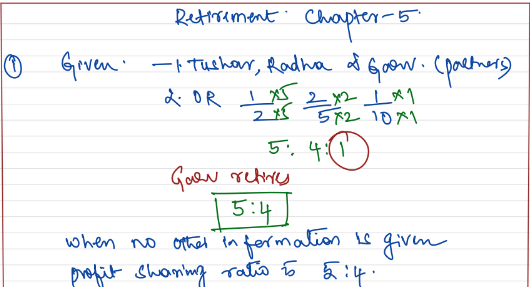 Retirement Chapter-5
① Given. – 1. Tushar, Radha & Gaov. (partners)
2. OR 1/2 ×5/×5 2/5 ×2/×2 1/10 ×1/×1
5: 4: 1
Gaov retires
5:4
when no other information is given
profit sharing ratio is 5:4.